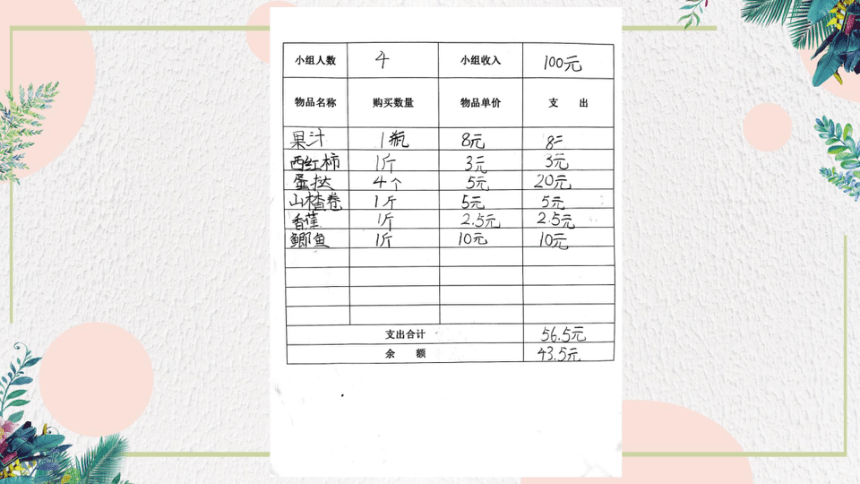 小组人数 4 小组收入 100元
物品名称 购买数量 物品单价 支 出
果汁 1瓶 8元 8元
西红柿 1斤 3元 3元
蛋挞 4个 5元 20元
山楂卷 1斤 5元 5元
香蕉 1斤 2.5元 2.5元
鲫鱼 1斤 10元 10元
支出合计 56.5元
余 额 43.5元